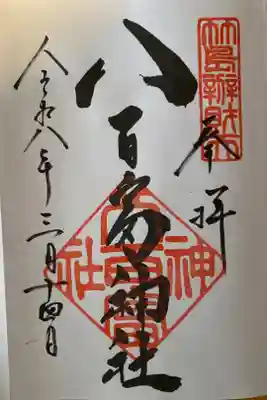 竹島辯財天
奉拝
八百富神社
八百富神社
令和八年三月十四日